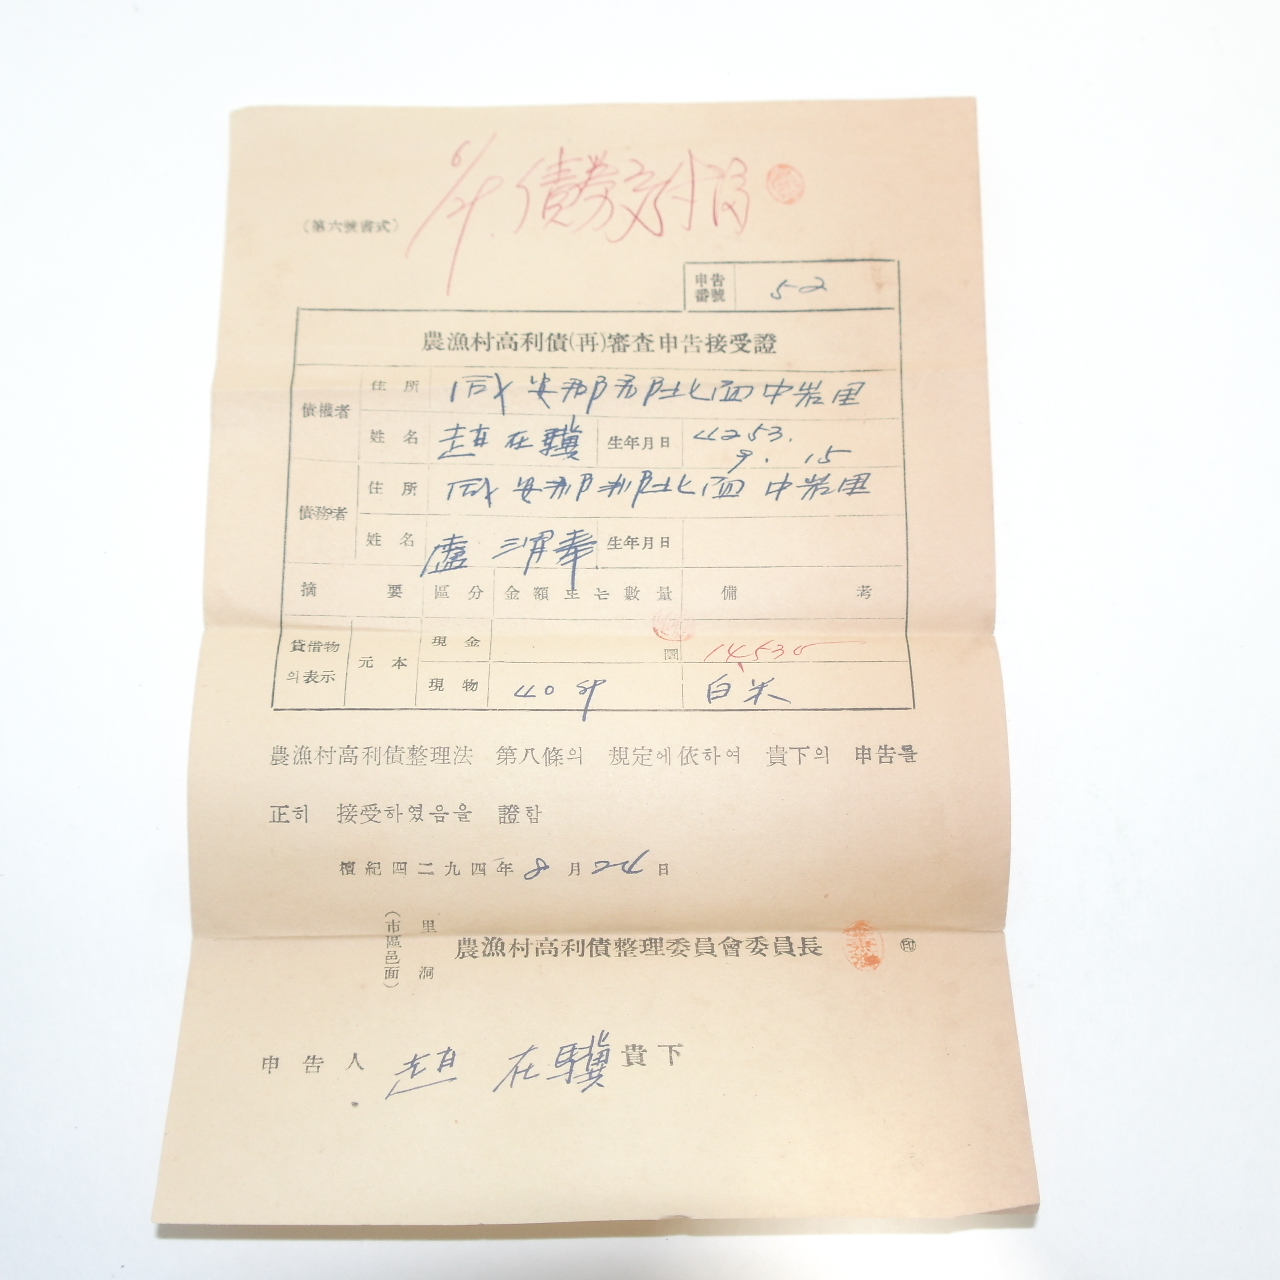 6/21 債券交付濟
(第六號書式)
申告番號 52
農漁村高利債(再)審査申告接受證
債權者 住所 咸安郡郡北面中岩里
姓名 趙在驥 生年月日 4253. 9. 15
債務者 住所 咸安郡郡北面中岩里
姓名 盧渭奉 生年月日
摘要 區分 金額또는數量 備考
貸借物의表示 元本 現金 圜 14,530
現物 40叺 白米
農漁村高利債整理法 第八條의 規定에依하여 貴下의 申告를
正히 接受하였음을 證함
檀紀四二九四年 8月 24日
(市區邑面) 里洞 農漁村高利債整理委員會委員長 ㊞
申告人 趙在驥 貴下